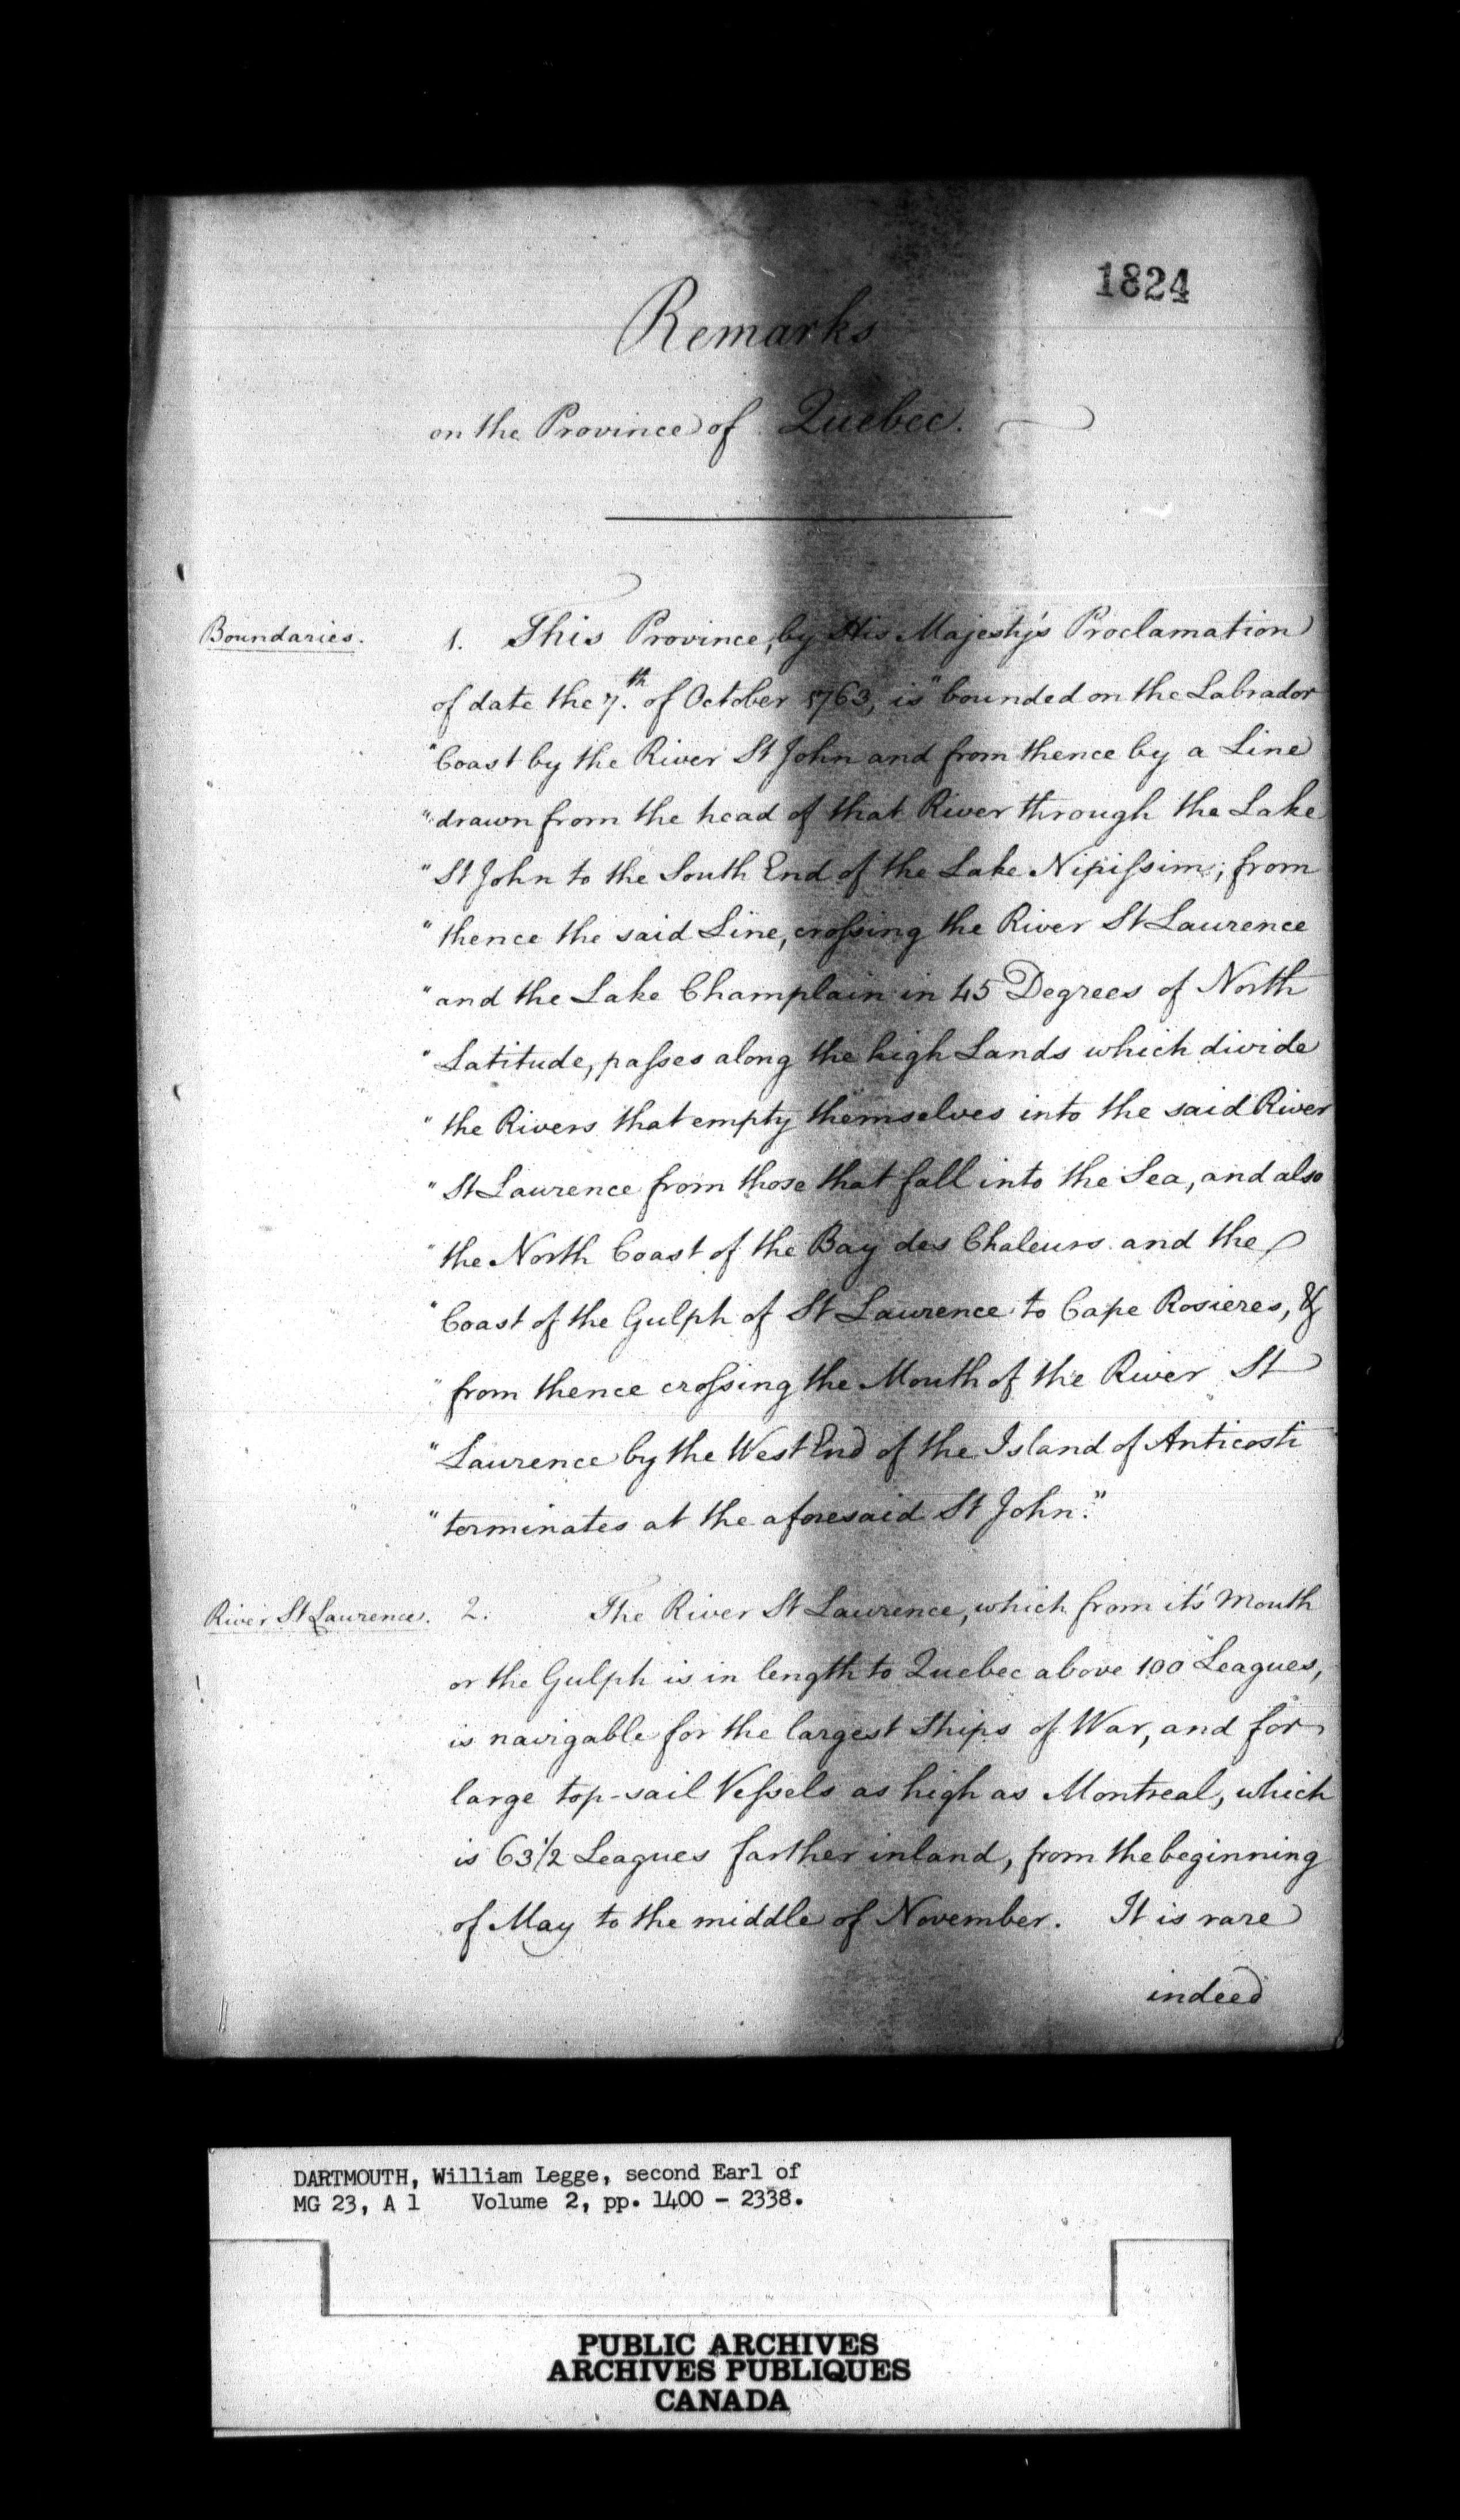 1824
Remarks
on the Province of Quebec.
Boundaries.
1. This Province, by His Majesty's Proclamation
of date the 7th. of October 1763, is "bounded on the Labrador
"Coast by the River St John and from thence by a Line
"drawn from the head of that River through the Lake
"St John to the South End of the Lake Nipiſsim; from
"thence the said Line, croſsing the River St Laurence
"and the Lake Champlain in 45 Degrees of North
"Latitude, paſses along the high Lands which divide
"the Rivers that empty themselves into the said River
"St Laurence from those that fall into the Sea, and also
"the North Coast of the Bay des Chaleurs and the
"Coast of the Gulph of St Laurence to Cape Rosieres, &
"from thence croſsing the Mouth of the River St
"Laurence by the West End of the Island of Anticosti
"terminates at the aforesaid St John."
River St Laurence.
2. The River St Laurence, which from it's Mouth
or the Gulph is in length to Quebec above 100 Leagues,
is navigable for the largest Ships of War, and for
large top-sail Veſsels as high as Montreal, which
is 63 1/2 Leagues farther inland, from the beginning
of May to the middle of November. It is rare
indeed
DARTMOUTH, William Legge, second Earl of
MG 23, A 1 Volume 2, pp. 1400 - 2338.
PUBLIC ARCHIVES
ARCHIVES PUBLIQUES
CANADA